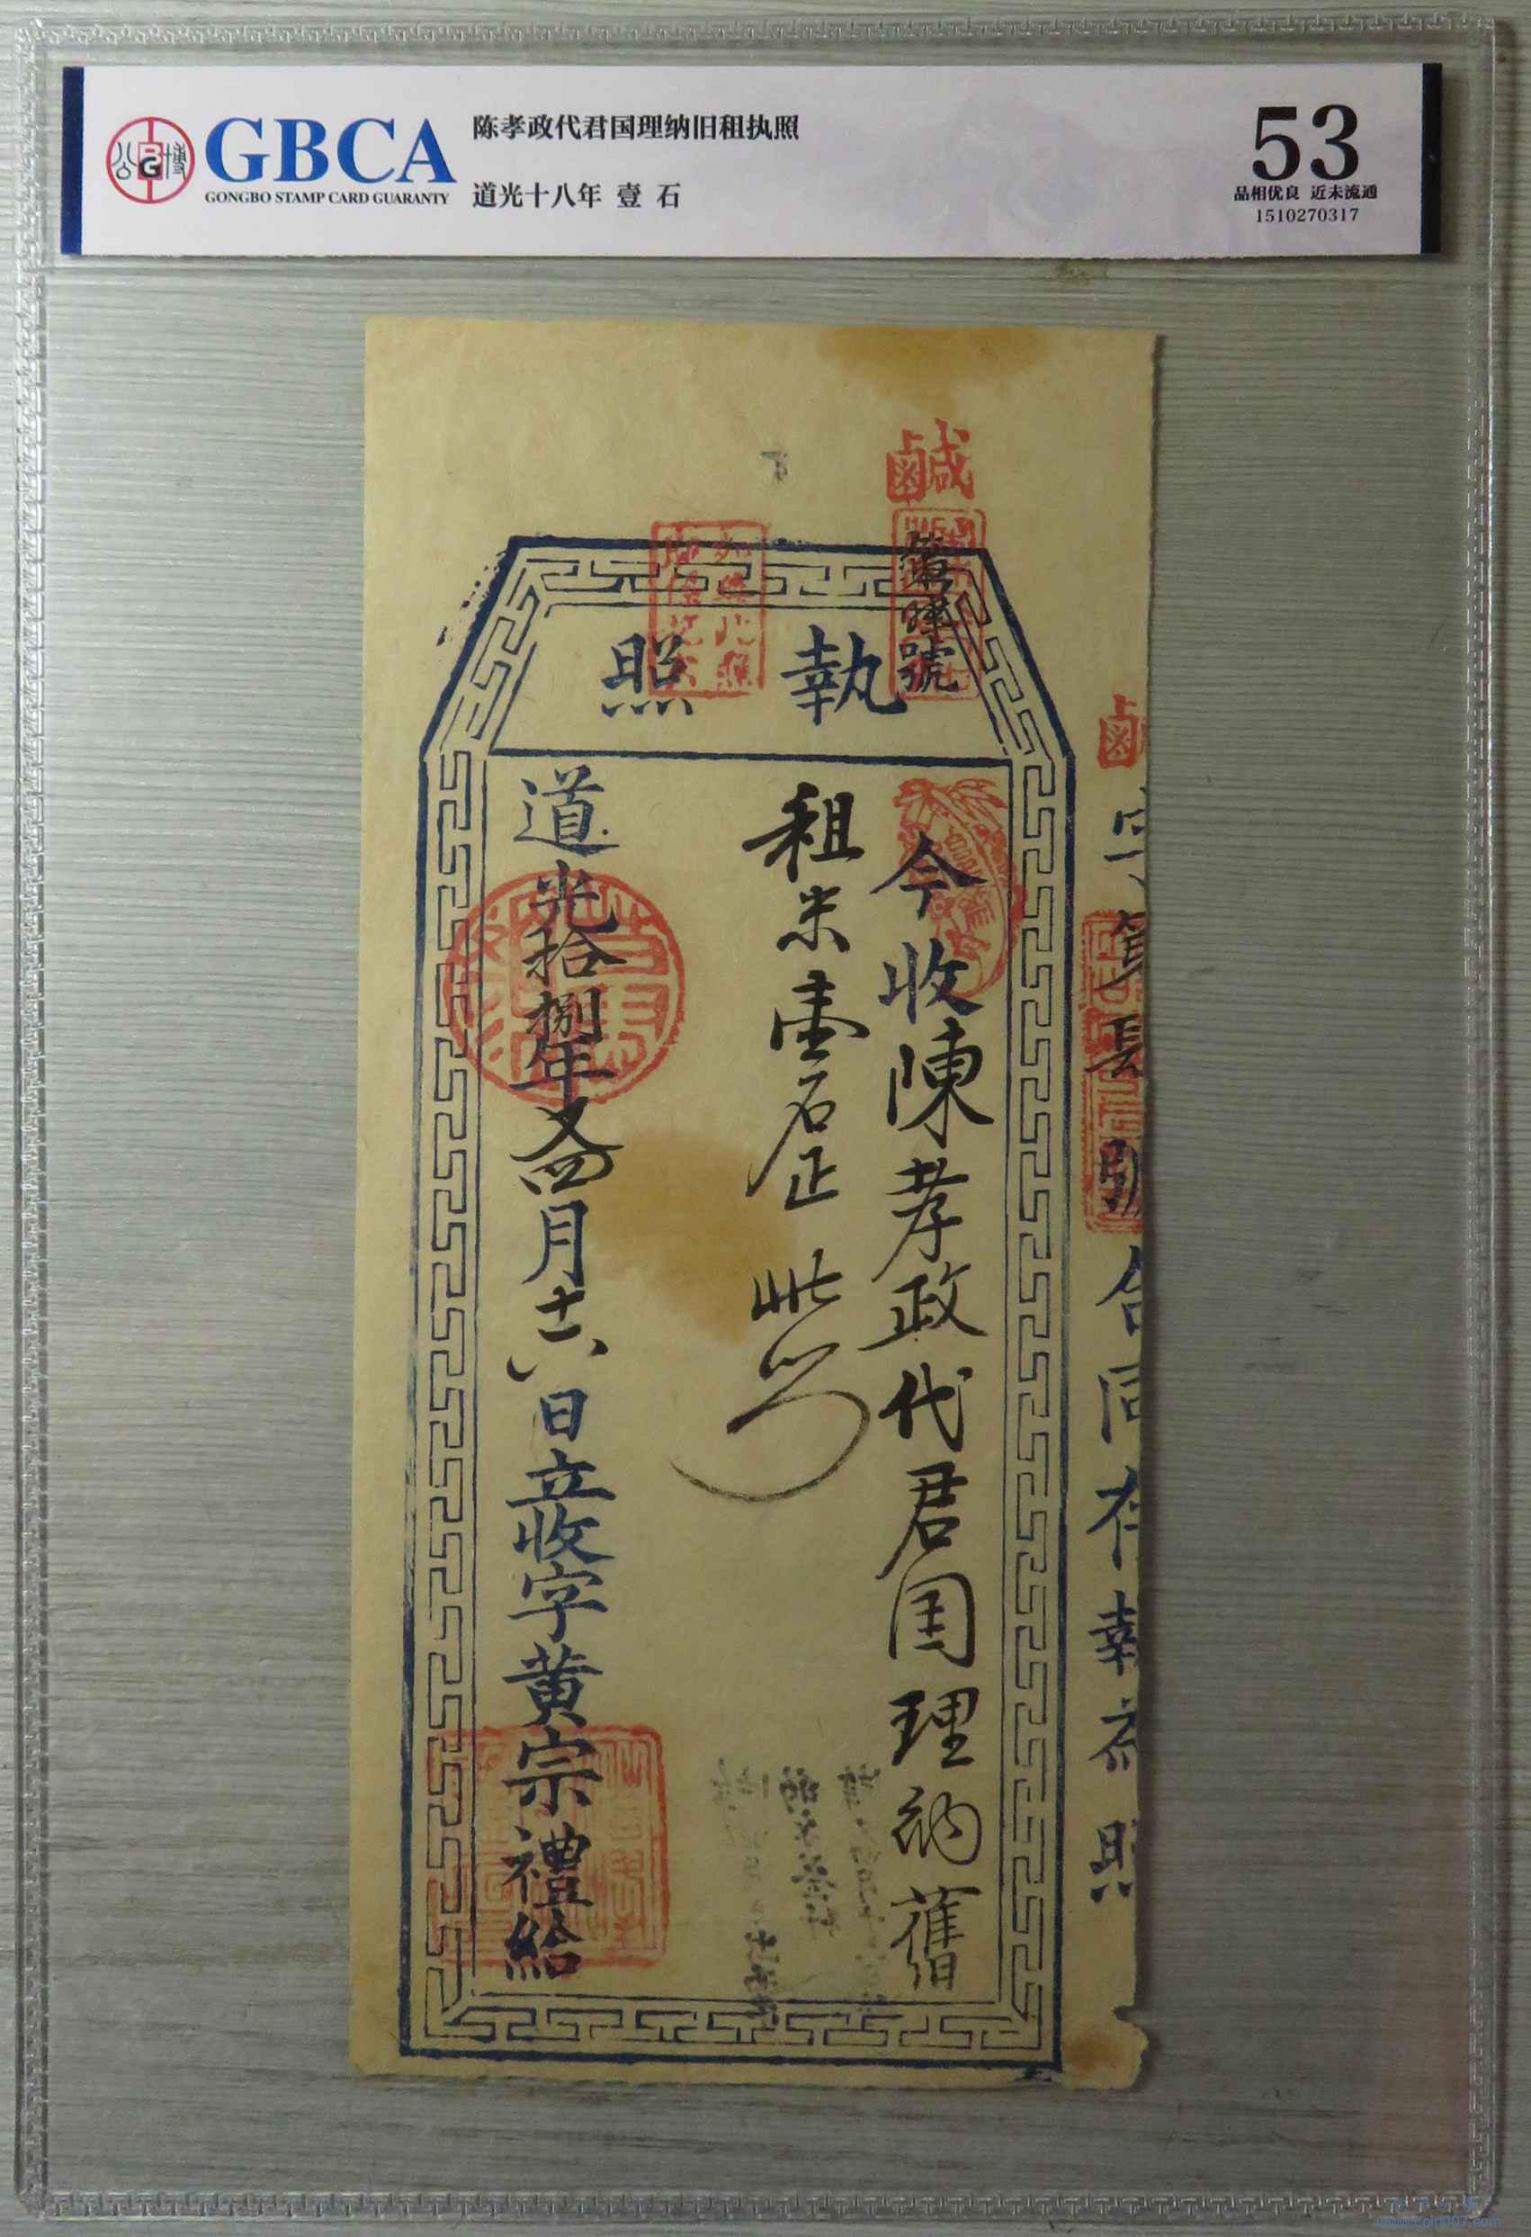 GBCA
GONGBO STAMP CARD GUARANTY
陈孝政代君国理纳旧租执照
道光十八年 壹 石
53
品相优良 近未流通
1510270317
鹹
號
執照
今收陳孝政代君国理納舊
租米壹石正 此照
道光拾捌年又四月十六日立收字黃宗禮給
合同存執為照